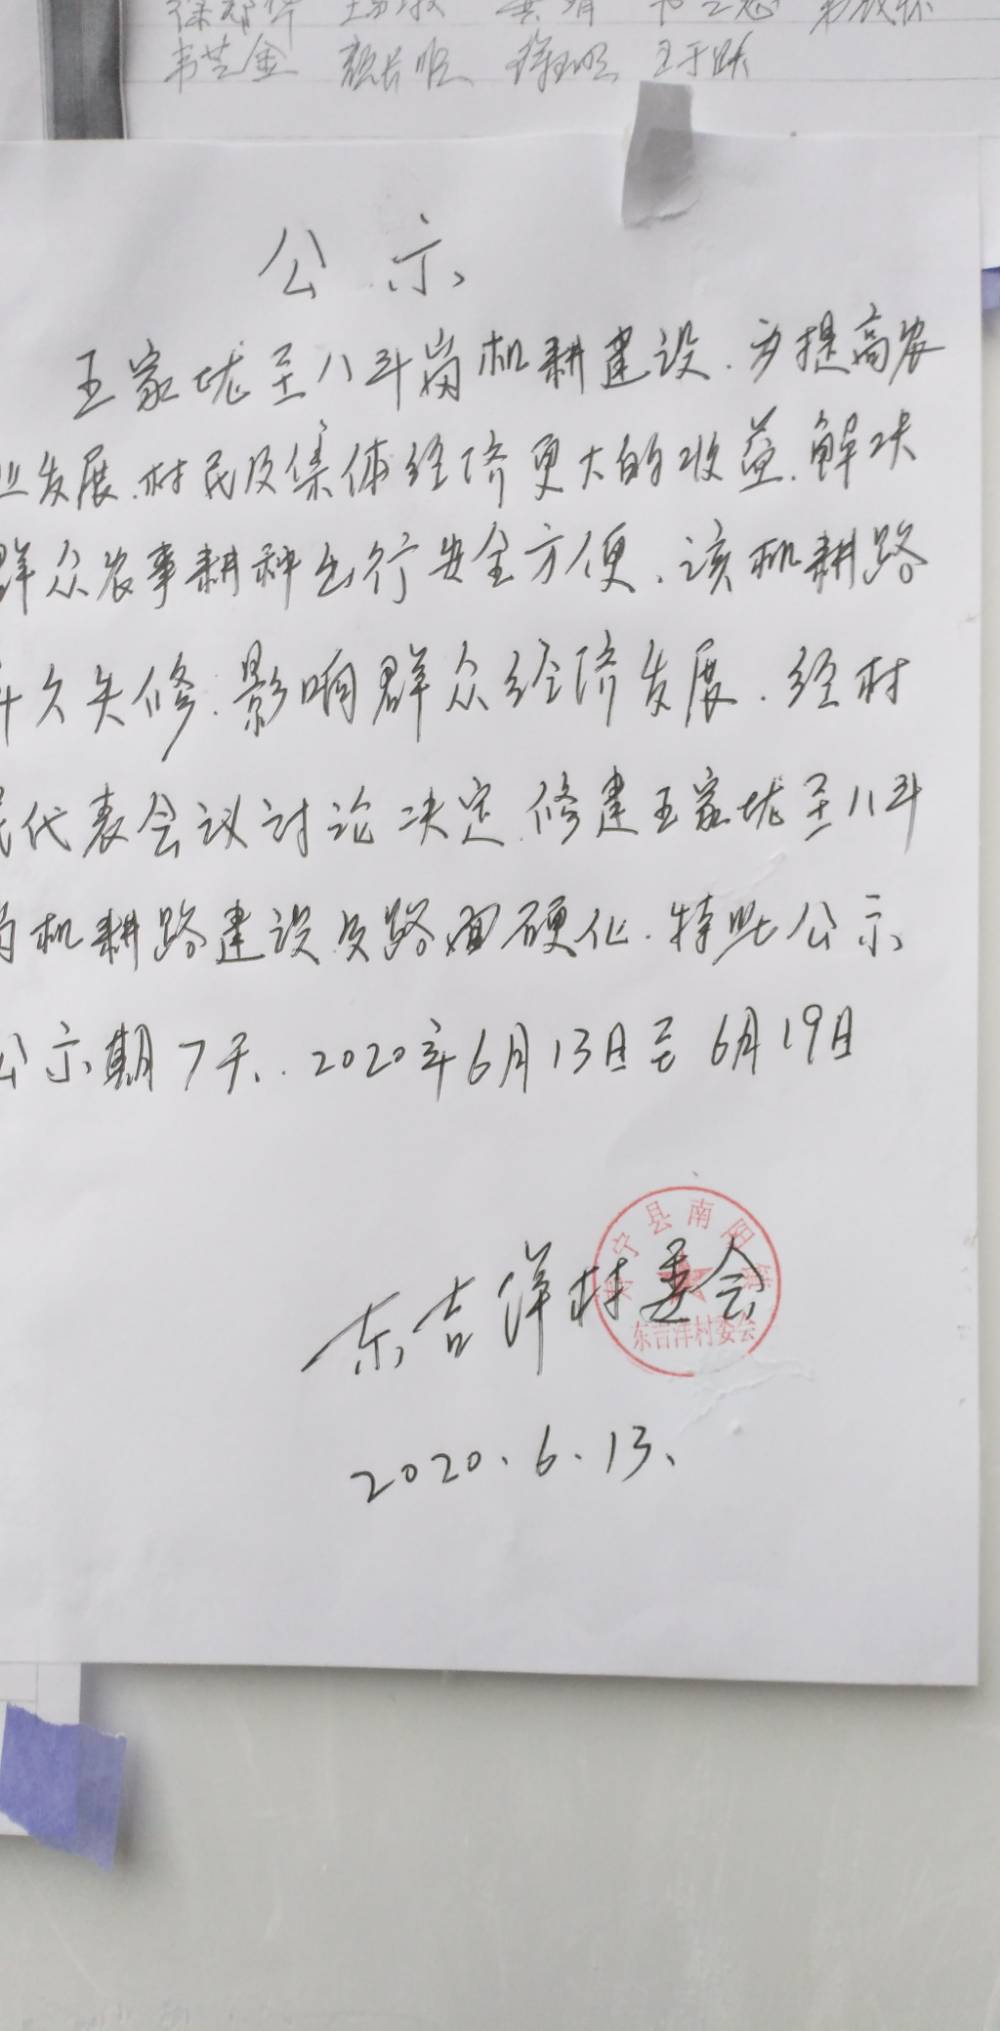 韦芝金
公示
王家垅至八斗岗机耕建设.为提高农
业发展.村民及集体经济更大的收益.解决
群众农事耕种出行安全方便.该机耕路
年久失修.影响群众经济发展.经村
民代表会议讨论决定.修建王家垅至八斗
岗机耕路建设及路面硬化.特此公示
公示期7天..2020年6月13日至6月19日
宁县南阳镇
东吉洋村委会
东吉洋村委会
2020.6.13.